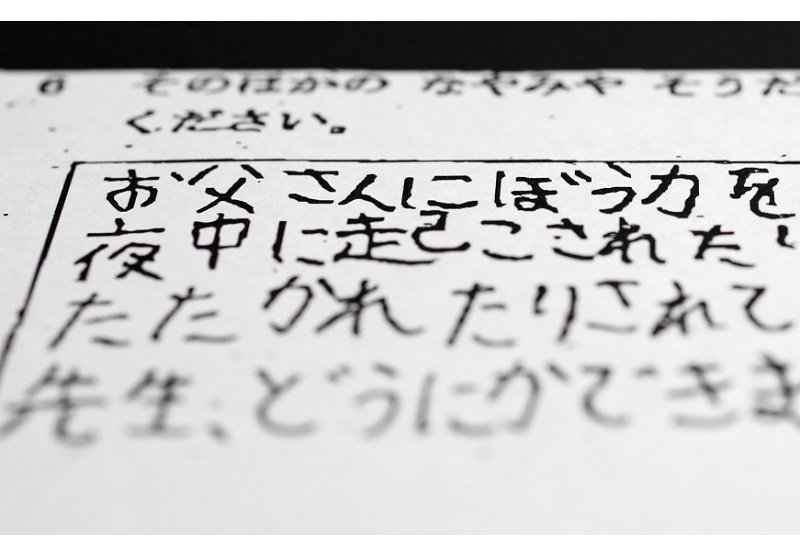 6 そのほかの なやみや そうだ
ください。
お父さんにぼう力を
夜中に起こされた
たたかれたりされて
先生、どうにかできま